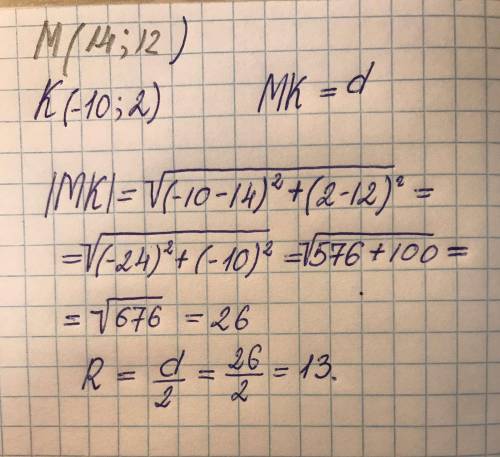 M(14;12)
K(-10;2) MK = d
|MK| = √(-10-14)² + (2-12)² =
= √(-24)² + (-10)² = √576 + 100 =
= √676 = 26
R = d/2 = 26/2 = 13.